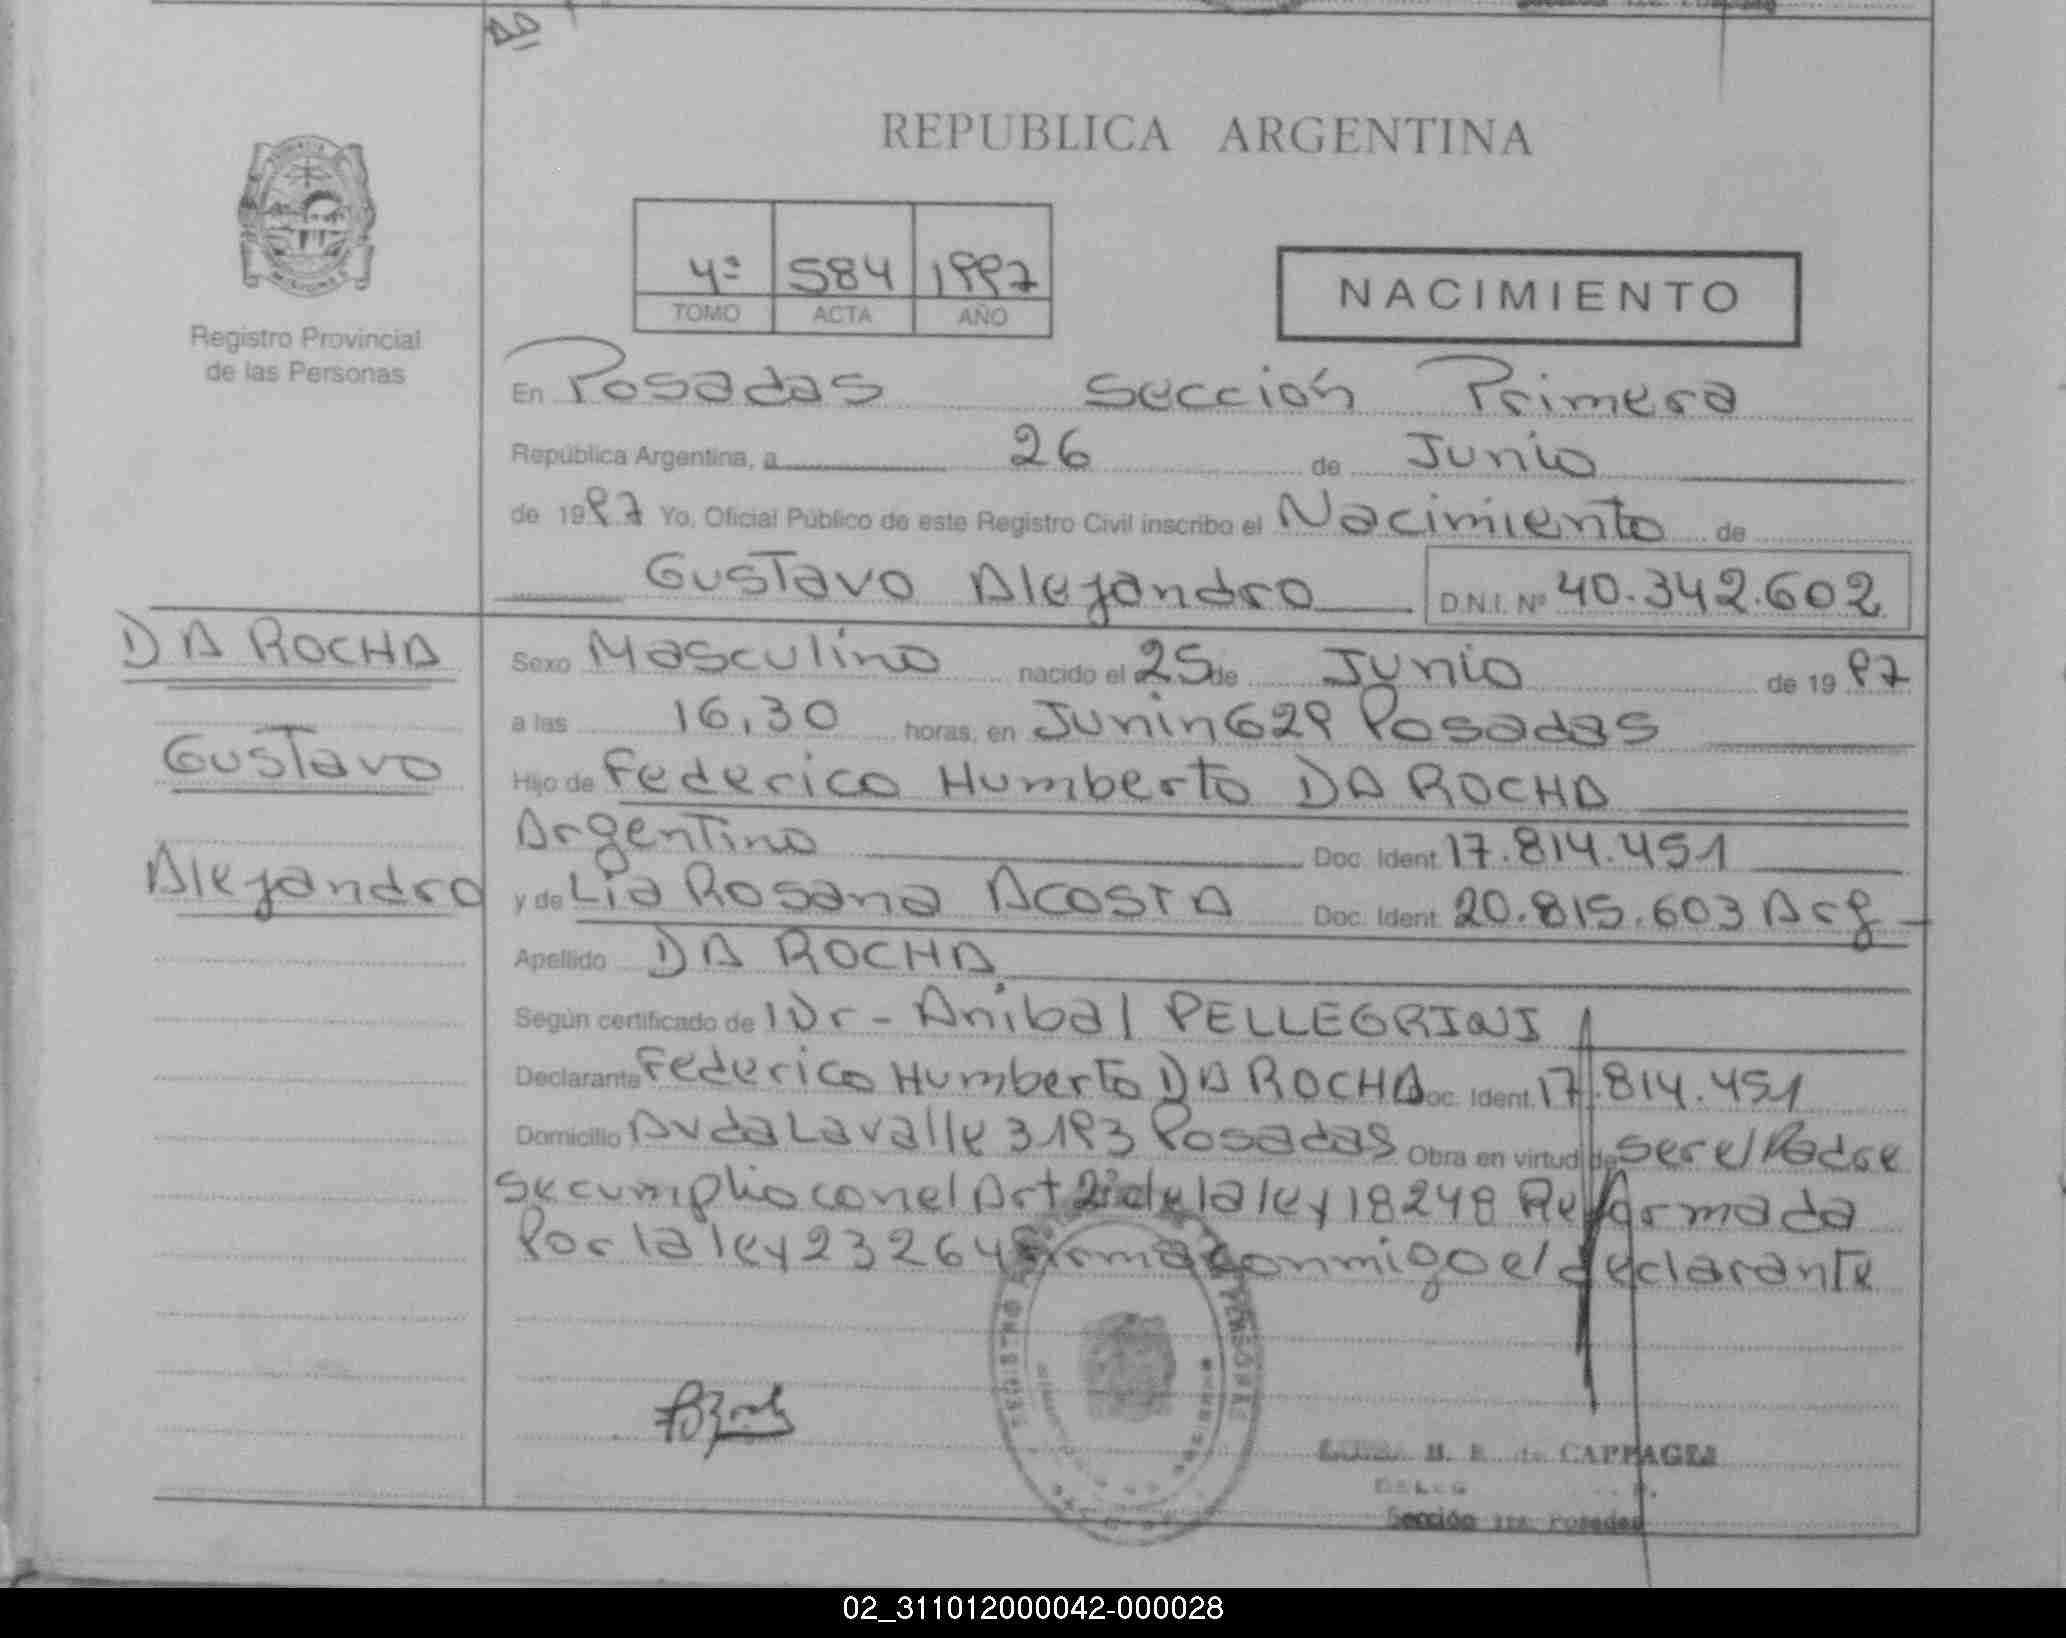 REPUBLICA ARGENTINA
4º 584 1997
TOMO ACTA AÑO
NACIMIENTO
Registro Provincial
de las Personas
En Posadas Sección Primera
República Argentina, a 26 de Junio
de 1997 Yo, Oficial Público de este Registro Civil inscribo el Nacimiento de
Gustavo Alejandro D.N.I. Nº 40.342.602
DA ROCHA
Gustavo
Alejandro
Sexo Masculino nacido el 25 de Junio de 1997
a las 16,30 horas, en Junin 629 Posadas
Hijo de Federico Humberto DA ROCHA
Argentino Doc. Ident. 17.814.451
y de Lia Rosana ACOSTA Doc. Ident. 20.815.603 Arg
Apellido DA ROCHA
Según certificado de Dr - Anibal PELLEGRINI
Declarante Federico Humberto DA ROCHA Doc. Ident. 17.814.451
Domicilio Avda Lavalle 3193 Posadas Obra en virtud de ser el Padre
se cumplio con el Art 2º de la ley 18248 Reformada
Por la ley 23264 Firma conmigo el declarante
PERSONAS
B. de CAPPAGLI
Sección 1ra. Posadas
02_311012000042-000028